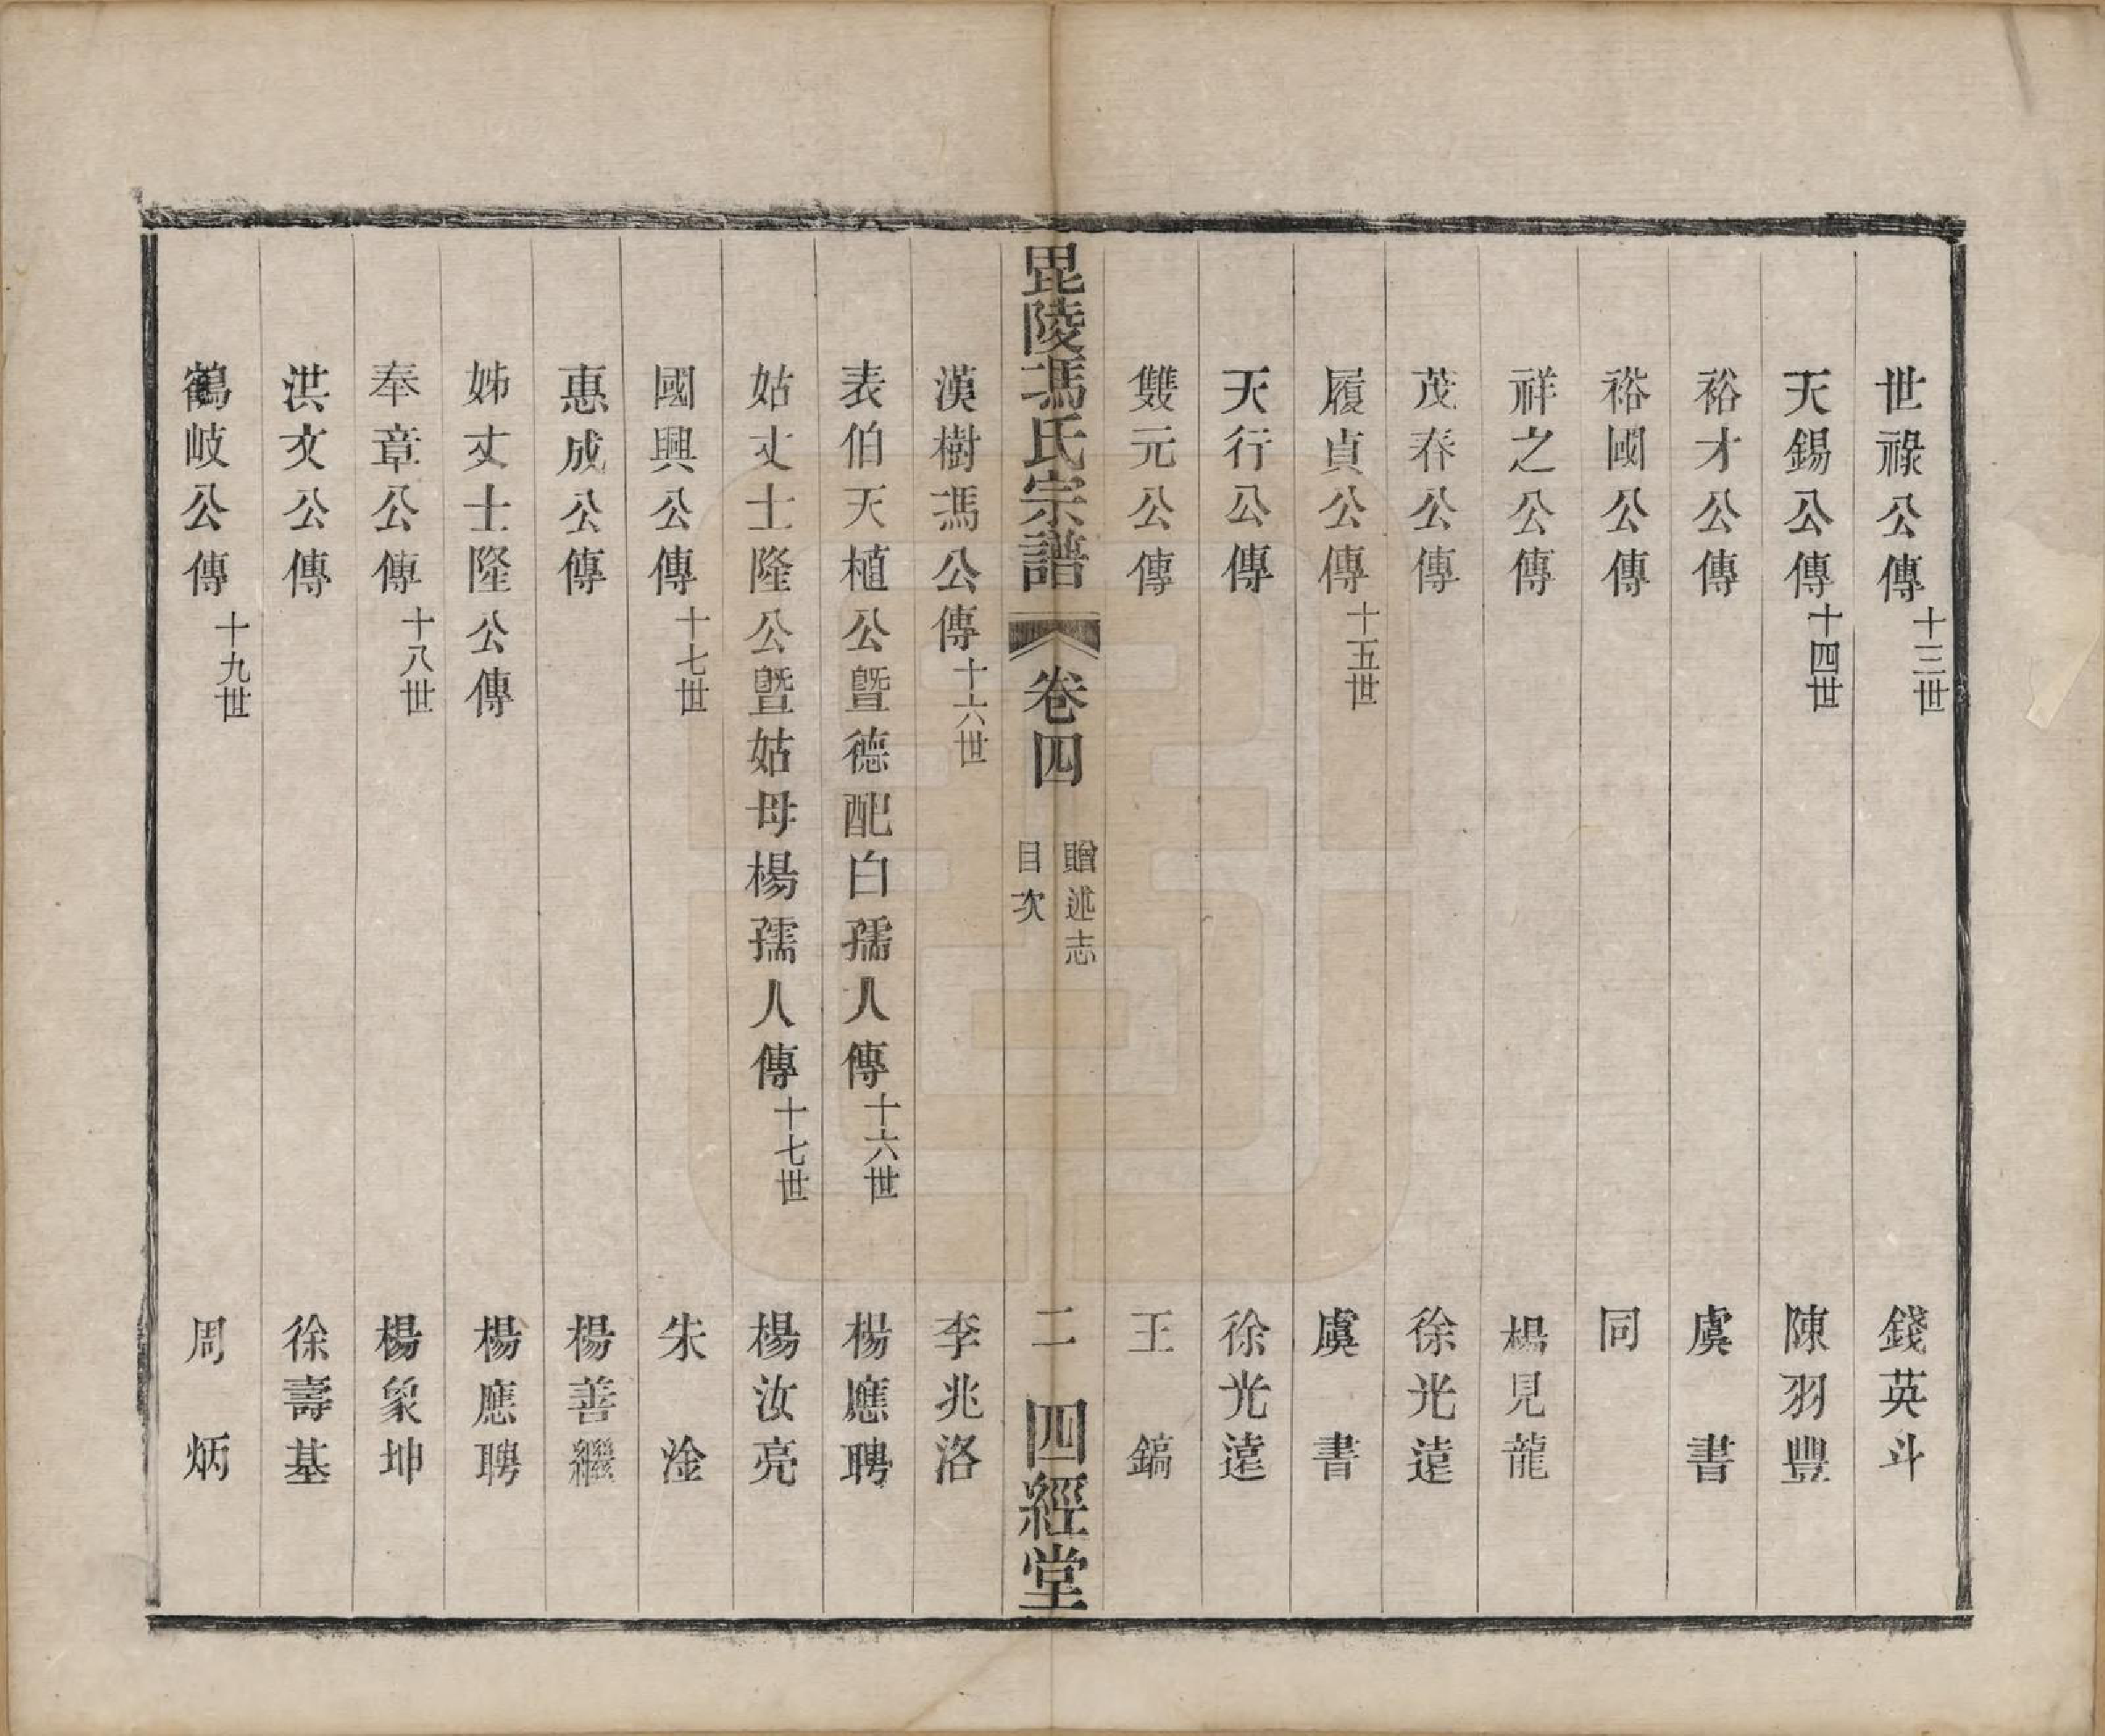 世祿公傳十三世 錢英斗
天錫公傳十四世 陳羽豐
裕才公傳 虞書
裕國公傳 同
祥之公傳 楊見龍
茂春公傳 徐光遠
履貞公傳十五世 虞書
天行公傳 徐光遠
雙元公傳 王鎬
毘陵馮氏宗譜 卷四 贈述志 目次 二 四經堂
漢樹馮公傳十六世 李兆洛
表伯天植公暨德配白孺人傳十六世 楊應聘
姑丈士隆公暨姑母楊孺人傳十七世 楊汝亮
國興公傳十七世 朱淦
惠成公傳 楊善繼
姊丈士隆公傳 楊應聘
奉章公傳十八世 楊象坤
洪文公傳 徐壽基
鶴岐公傳十九世 周炳